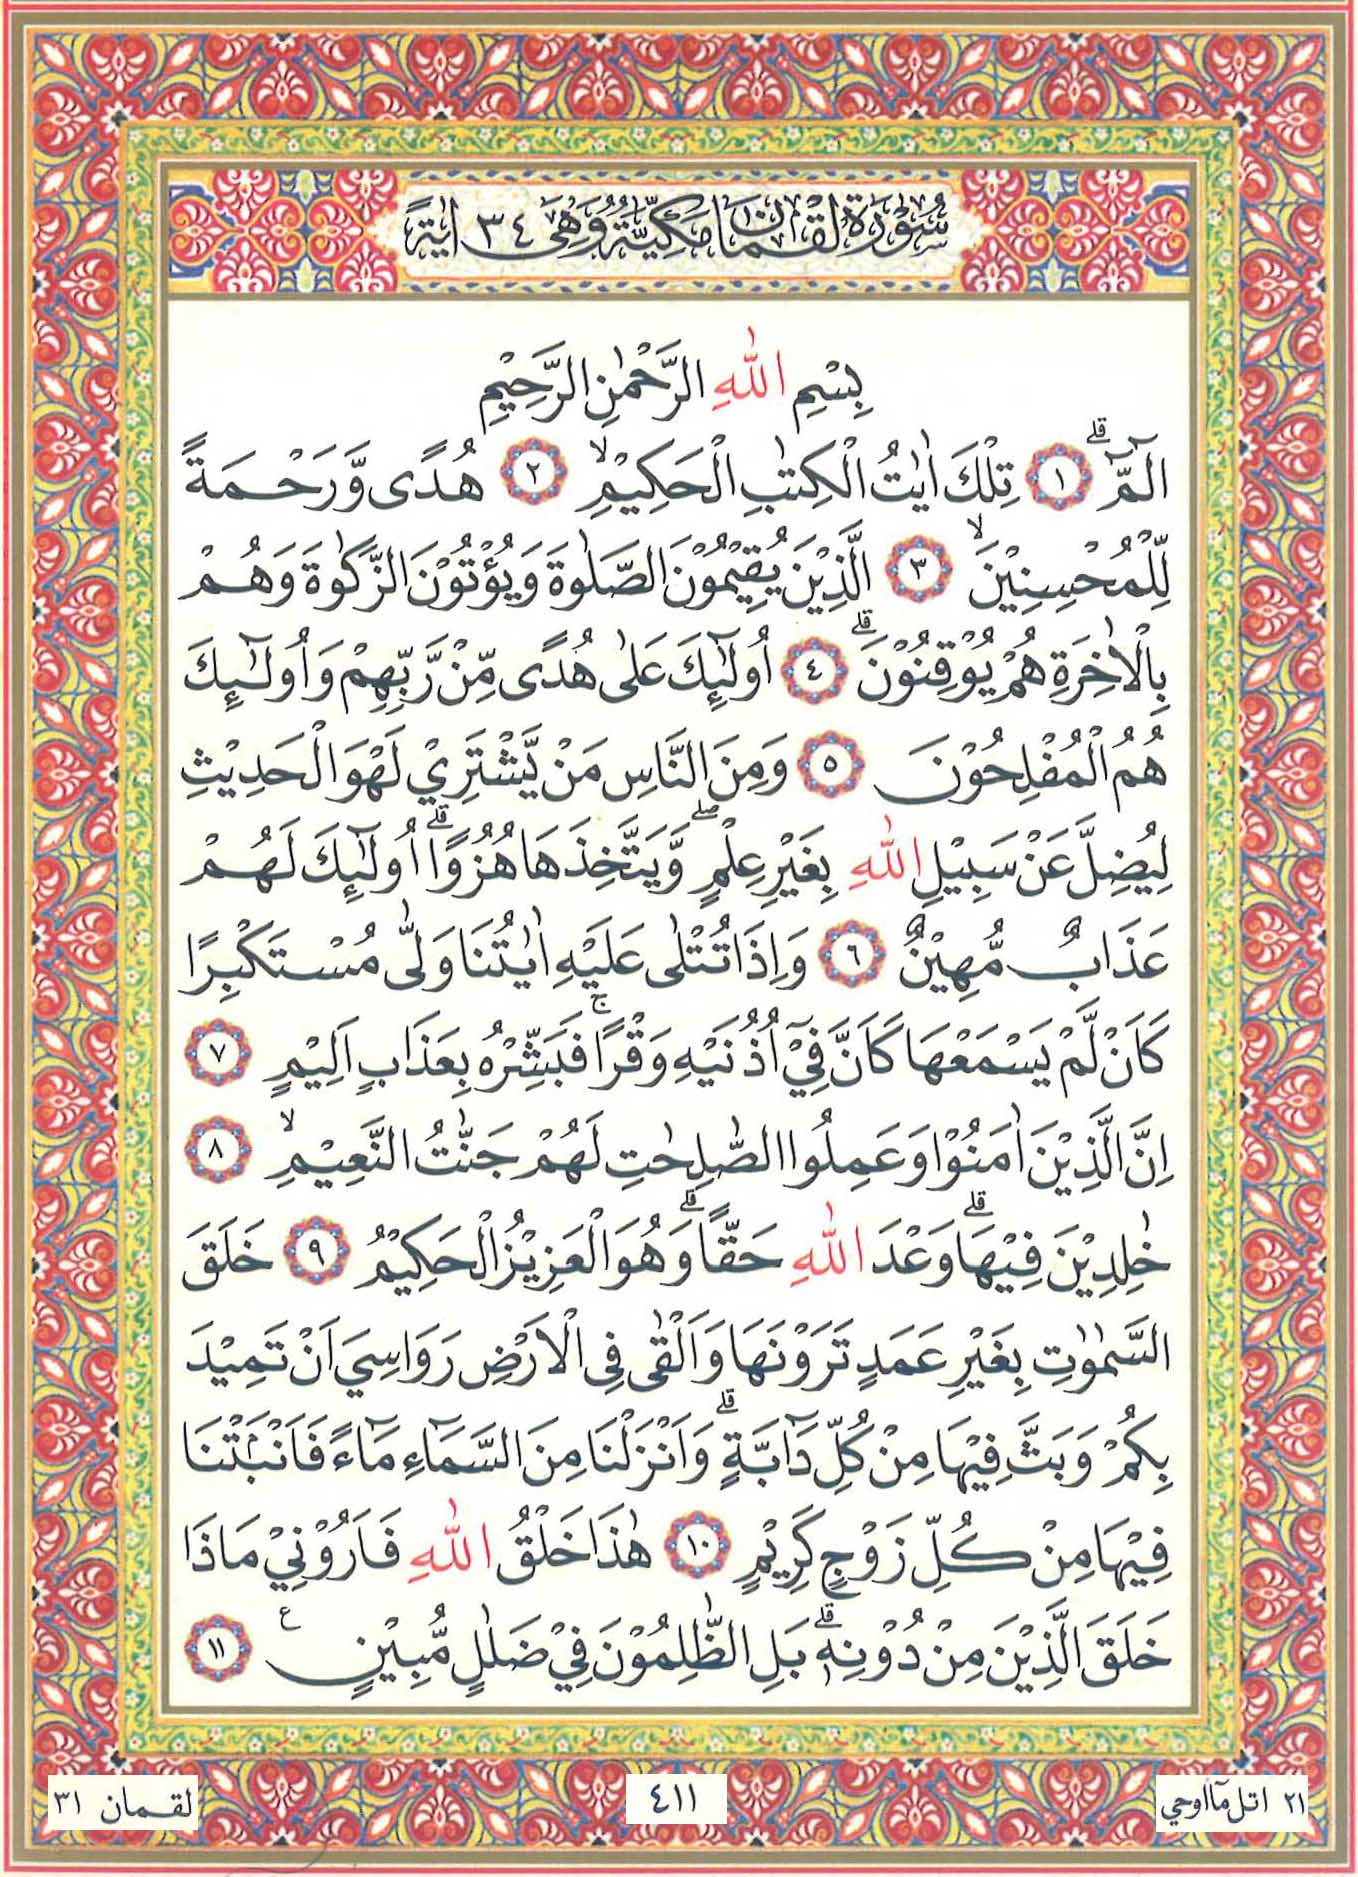 سُوْرَةُ لُقْمٰنَ مَكِّيَّةٌ وَهِيَ ٣٤ اٰيَةً
بِسْمِ اللّٰهِ الرَّحْمٰنِ الرَّحِيْمِ
الٓمّٓ ۚۖ ١ تِلْكَ اٰيٰتُ الْكِتٰبِ الْحَكِيْمِۙ ٢ هُدًى وَّرَحْمَةً
لِّلْمُحْسِنِيْنَۙ ٣ الَّذِيْنَ يُقِيْمُوْنَ الصَّلٰوةَ وَيُؤْتُوْنَ الزَّكٰوةَ وَهُمْ
بِالْاٰخِرَةِ هُمْ يُوْقِنُوْنَۗ ٤ اُولٰٓئِكَ عَلٰى هُدًى مِّنْ رَّبِّهِمْ وَاُولٰٓئِكَ
هُمُ الْمُفْلِحُوْنَ ٥ وَمِنَ النَّاسِ مَنْ يَّشْتَرِيْ لَهْوَ الْحَدِيْثِ
لِيُضِلَّ عَنْ سَبِيْلِ اللّٰهِ بِغَيْرِ عِلْمٍۖ وَّيَتَّخِذَهَا هُزُوًاۗ اُولٰٓئِكَ لَهُمْ
عَذَابٌ مُّهِيْنٌ ٦ وَاِذَا تُتْلٰى عَلَيْهِ اٰيٰتُنَا وَلّٰى مُسْتَكْبِرًا
كَاَنْ لَّمْ يَسْمَعْهَا كَاَنَّ فِيْٓ اُذُنَيْهِ وَقْرًاۚ فَبَشِّرْهُ بِعَذَابٍ اَلِيْمٍ ٧
اِنَّ الَّذِيْنَ اٰمَنُوْا وَعَمِلُوا الصّٰلِحٰتِ لَهُمْ جَنّٰتُ النَّعِيْمِۙ ٨
خٰلِدِيْنَ فِيْهَاۗ وَعْدَ اللّٰهِ حَقًّاۗ وَهُوَ الْعَزِيْزُ الْحَكِيْمُ ٩ خَلَقَ
السَّمٰوٰتِ بِغَيْرِ عَمَدٍ تَرَوْنَهَا وَاَلْقٰى فِى الْاَرْضِ رَوَاسِيَ اَنْ تَمِيْدَ
بِكُمْ وَبَثَّ فِيْهَا مِنْ كُلِّ دَاۤبَّةٍۗ وَاَنْزَلْنَا مِنَ السَّمَاۤءِ مَاۤءً فَاَنْۢبَتْنَا
فِيْهَا مِنْ كُلِّ زَوْجٍ كَرِيْمٍ ١٠ هٰذَا خَلْقُ اللّٰهِ فَاَرُوْنِيْ مَاذَا
خَلَقَ الَّذِيْنَ مِنْ دُوْنِهٖۗ بَلِ الظّٰلِمُوْنَ فِيْ ضَلٰلٍ مُّبِيْنٍ ࣖ ١١
٢١ اتل مآ اوحي
٤١١
لقمان ٣١